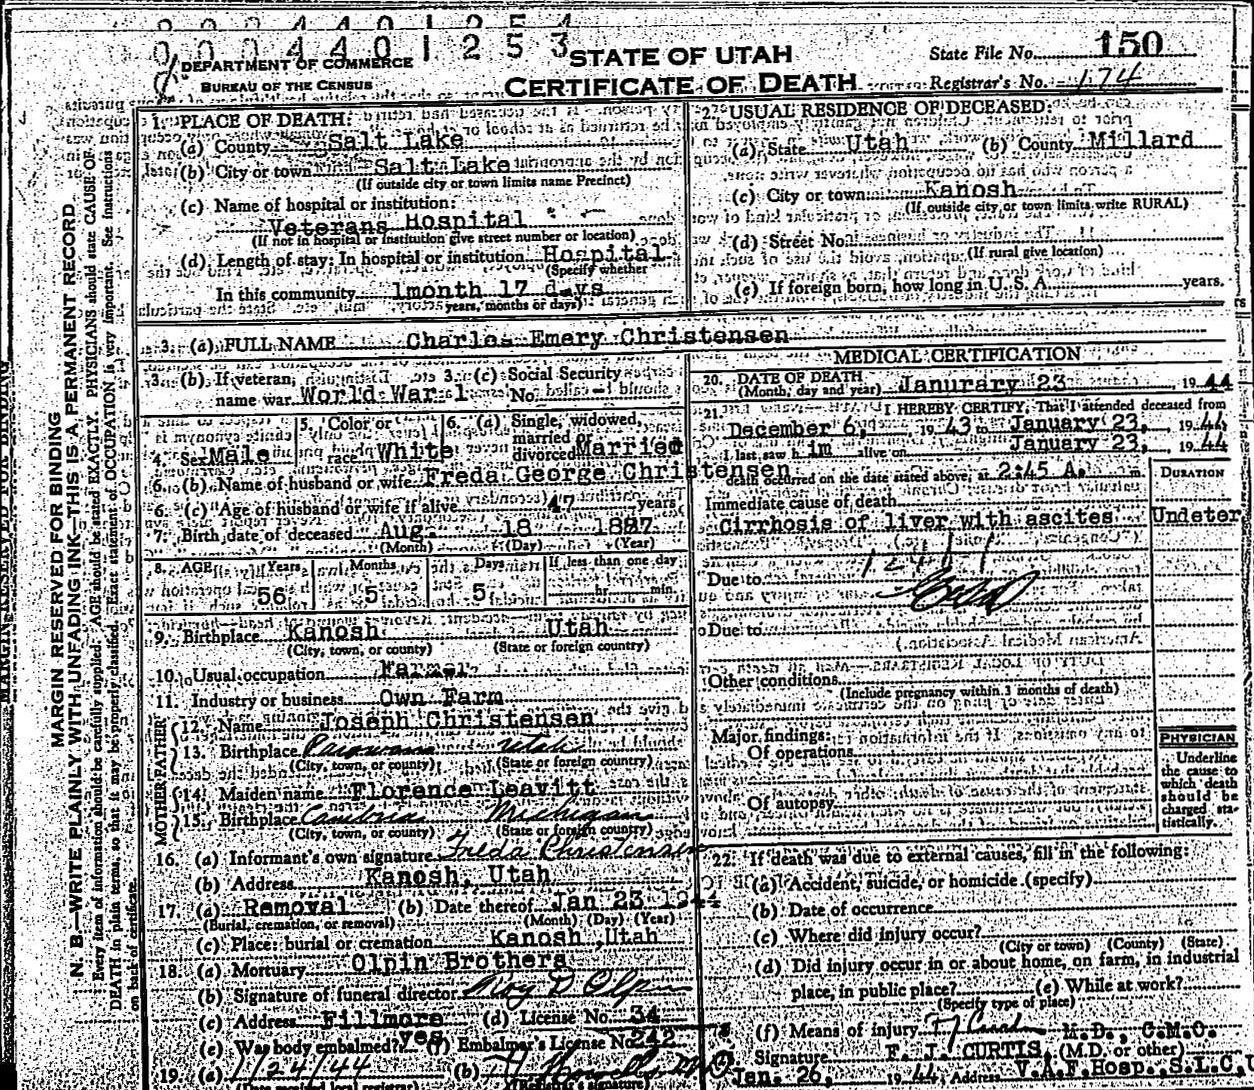 0 0 0 4 4 0 1 2 5 3
STATE OF UTAH
State File No. 150
DEPARTMENT OF COMMERCE
BUREAU OF THE CENSUS
CERTIFICATE OF DEATH
Registrar's No. 174
MARGIN RESERVED FOR BINDING
N. B.—WRITE PLAINLY WITH UNFADING INK—THIS IS A PERMANENT RECORD
Every item of information should be carefully supplied. AGE should be stated EXACTLY. PHYSICIANS should state CAUSE OF
DEATH in plain terms, so that it may be properly classified. Exact statement of OCCUPATION is very important. See instructions
on back of certificate.
1. PLACE OF DEATH:
(a) County Salt Lake
(b) City or town Salt Lake
(If outside city or town limits name Precinct)
(c) Name of hospital or institution:
Veterans Hospital
(If not in hospital or institution give street number or location)
(d) Length of stay: In hospital or institution Hospital
(Specify whether
In this community 1month 17 days
years, months or days)
2. USUAL RESIDENCE OF DECEASED:
(a) State Utah (b) County Millard
(c) City or town Kanosh
(If outside city or town limits write RURAL)
(d) Street No.
(If rural give location)
(e) If foreign born, how long in U. S. A. years.
3. (a) FULL NAME Charles Emery Christensen
3. (b) If veteran, name war World War 1
3. (c) Social Security No.
4. Sex Male
5. Color or race White
6. (a) Single, widowed, married or divorced Married
6. (b) Name of husband or wife Freda George Christensen
6. (c) Age of husband or wife if alive 47 years
7. Birth date of deceased Aug. 18 1887
(Month) (Day) (Year)
8. AGE Years Months Days If less than one day
56 5 5 hr. min.
9. Birthplace Kanosh Utah
(City, town, or county) (State or foreign country)
10. Usual occupation Farmer
11. Industry or business Own Farm
FATHER
12. Name Joseph Christensen
13. Birthplace Parowan Utah
(City, town, or county) (State or foreign country)
MOTHER
14. Maiden name Florence Leavitt
15. Birthplace Cambria Michigan
(City, town, or county) (State or foreign country)
16. (a) Informant's own signature Freda Christensen
(b) Address Kanosh, Utah
17. (a) Removal (b) Date thereof Jan 23 1944
(Burial, cremation, or removal) (Month) (Day) (Year)
(c) Place: burial or cremation Kanosh, Utah
18. (a) Mortuary Olpin Brothers
(b) Signature of funeral director Roy D Olpin
(c) Address Fillmore (d) License No. 34
(e) Was body embalmed? yes (f) Embalmer's License No. 242
19. (a) 1/24/44 (b)
(Registrar's signature)
MEDICAL CERTIFICATION
20. DATE OF DEATH
(Month, day and year) Janurary 23, 1944
21. I HEREBY CERTIFY, That I attended deceased from
December 6, 1943 January 23, 1944
I last saw him alive on January 23, 1944
death occurred on the date stated above, at 2:45 A. m.
DURATION
Immediate cause of death
Cirrhosis of liver with ascites Undeter
Due to
Due to
Other conditions
(Include pregnancy within 3 months of death)
Major findings:
Of operations
Of autopsy
PHYSICIAN
Underline
the cause to
which death
should be
charged sta-
tistically.
22. If death was due to external causes, fill in the following:
(a) Accident, suicide, or homicide (specify)
(b) Date of occurrence
(c) Where did injury occur?
(City or town) (County) (State)
(d) Did injury occur in or about home, on farm, in industrial
place, in public place? (e) While at work?
(Specify type of place)
(f) Means of injury M.D., C.M.O.
Signature F. J. CURTIS, (M.D. or other)
Jan. 26, 1944 Address V.A.F.Hosp.,S.L.C.